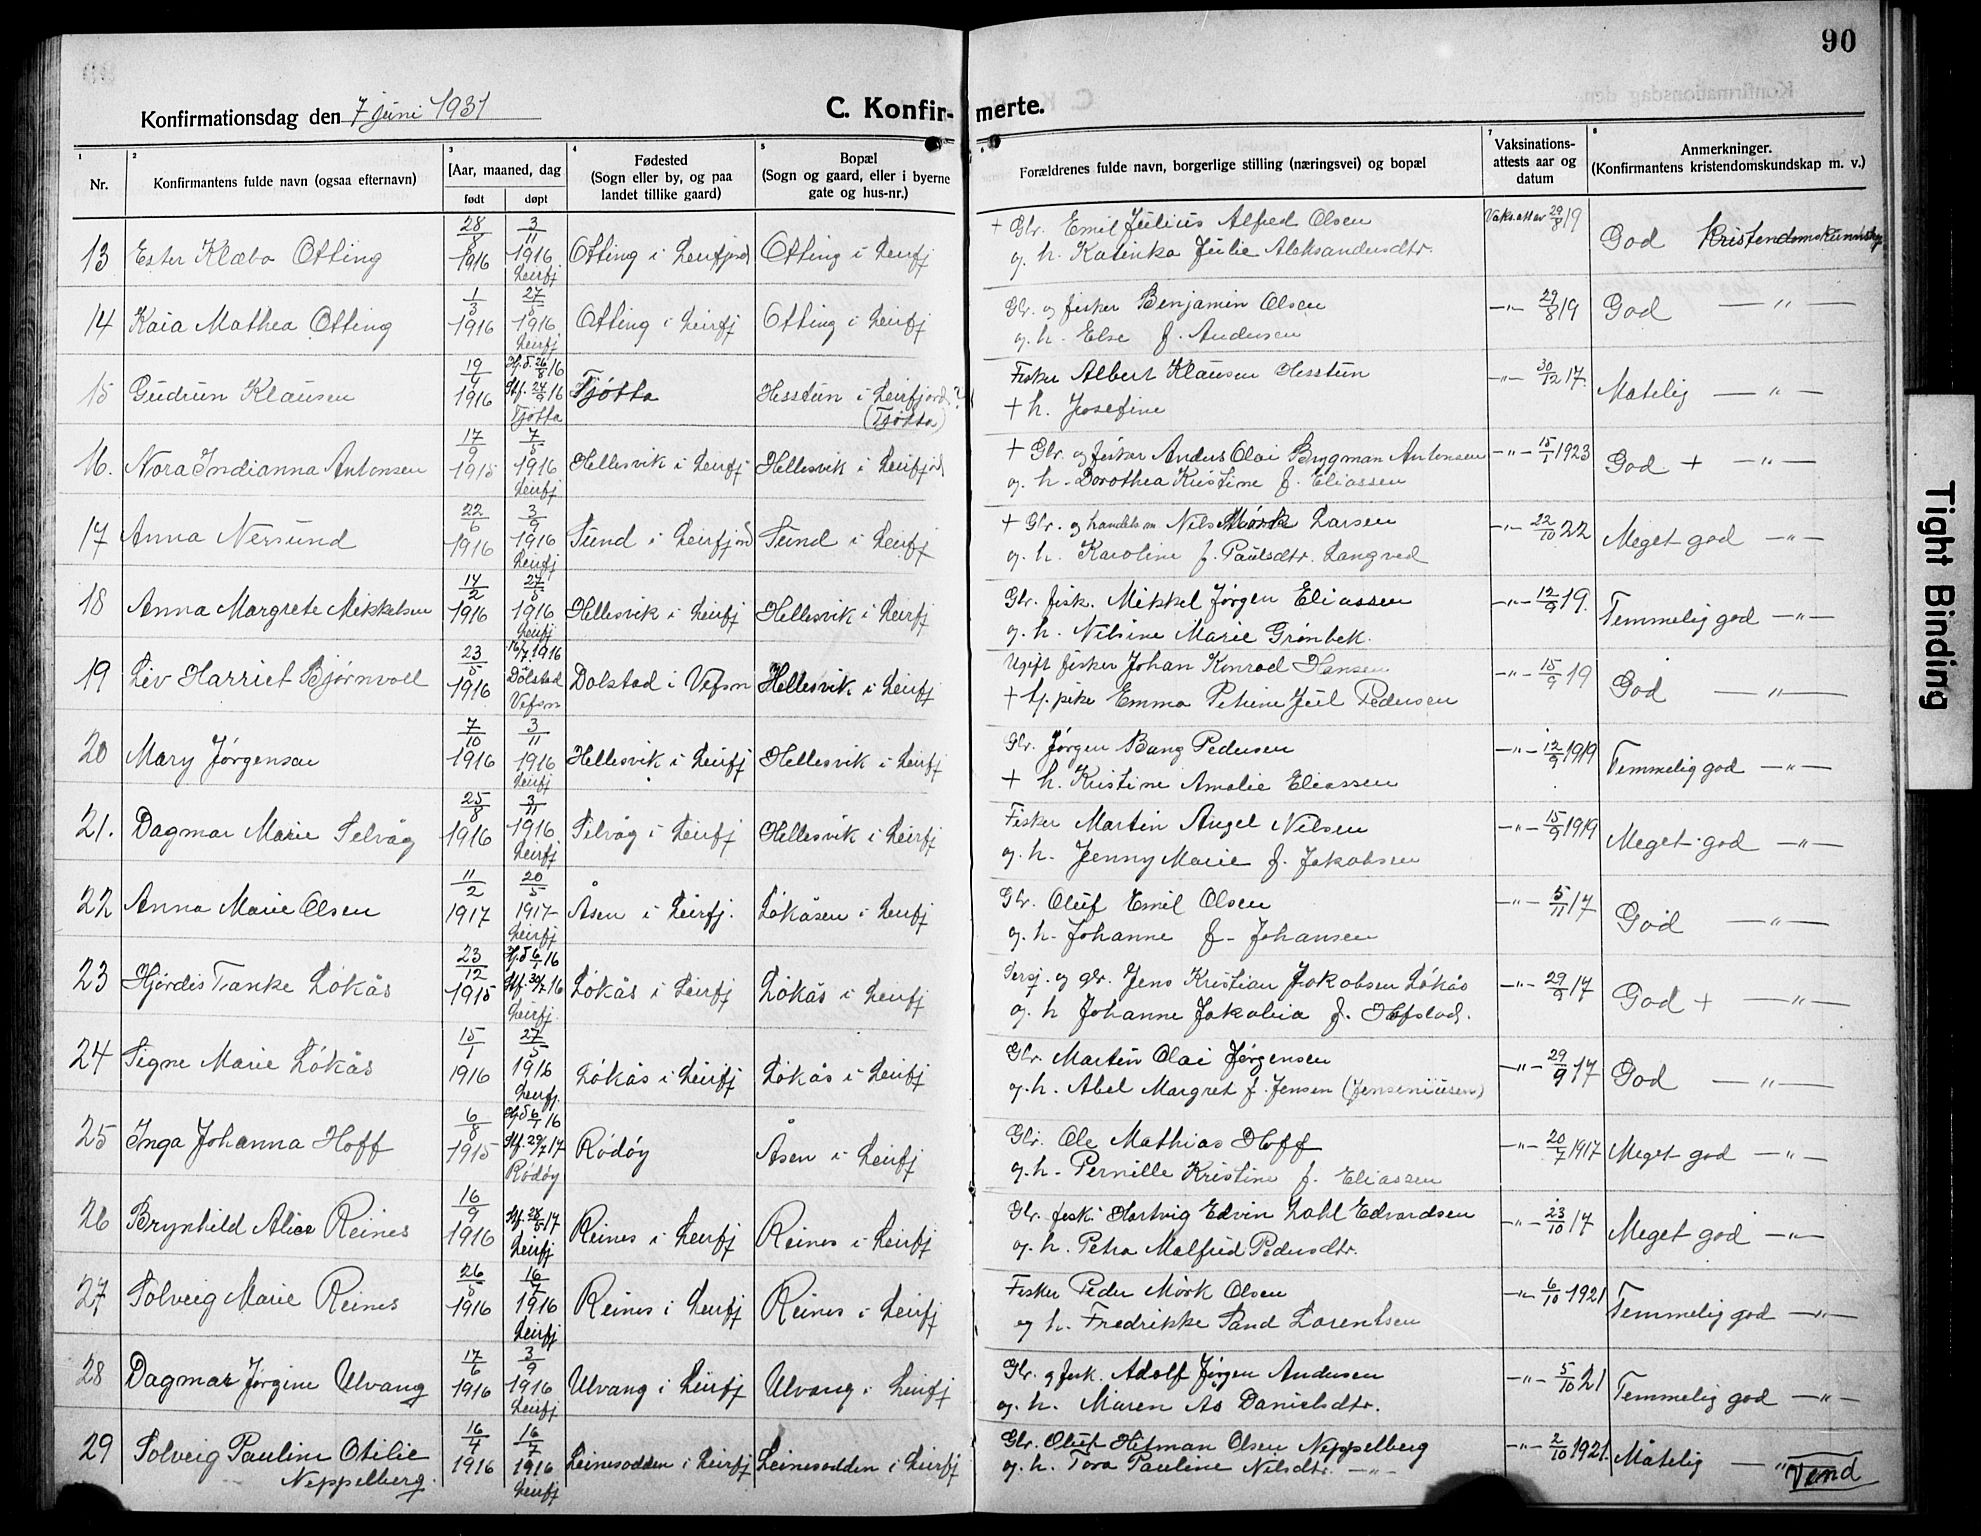 90
Konfirmationsdag den 7 juni 1931
C. Konfirmerte.
1 2 3 4 5 6 7 8
Nr.
Konfirmantens fulde navn (ogsaa efternavn)
[Aar, maaned, dag
født døpt
Fødested
(Sogn eller by, og paa
landet tillike gaard)
Bopæl
(Sogn og gaard, eller i byerne
gate og hus-nr.)
Forældrenes fulde navn, borgerlige stilling (næringsvei) og bopæl
Vaksinations-
attests aar og
datum
Anmerkninger.
(Konfirmantens kristendomskundskap m. v.)
13 Ester Klæbo Otting 28/8 1916 3/11 1916 Leirfj Otting i Leirfjord Otting i Leirfj
+ Gbr. Emil Julius Alfred Olsen
og h. Katinka Julie Aleksandersdtr.
Vaks.att av 29/8 19 God Kristendomskunnskap
14 Kaia Mathea Otting 1/3 1916 27/5 1916 Leirfj Otting i Leirfj Otting i Leirfj
Gbr. og fisker Benjamin Olsen
og h. Else f. Andersen
-"- 29/8 19 God -"-
15 Gudrun Klausen 1916 Hj.d. 26/8 16 Stf. 24/9 16 Tjøtta Tjøtta Hesstun i Leirfjord? (Tjøtta)
Fisker Albert Klausen Hesstun
+ h. Josefine
-"- 30/12 17. Måtelig -"-
16. Nora Indianna Antonsen 17/9 1915 7/5 1916 Leirfj Hellesvik i Leirfj Hellesvik i Leirfjord
+ Gbr. og fisker Anders Olai Brygman Antonsen
og h. Dorothea Kristine f. Eliassen
-"- 15/1 1923 God + -"-
17 Anna Nersund 22/6 1916 3/9 1916 Leirfj Sund i Leirfjord Sund i Leirfj
+ Gbr. og handelsm. Nils Mörk Larsen
og h. Karoline f. Paulsdtr. Langved
-"- 22/10 22 Meget god -"-
18 Anna Margrete Mikkelsen 14/2 1916 27/5 1916 Leirfj Hellesvik i Leirfj Hellesvik i Leirfj
Gbr. fisk. Mikkel Jørgen Eliassen
og h. Nilsine Marie Grønbek.
-"- 12/9 19. Temmelig god -"-
19 Liv Harriet Bjørnvoll 23/5 1916 16/7 1916 Dolstad Vefsn Dolstad i Vefsn Hellesvik i Leirfj
Ugift fisker Johan Konrad Hansen
+ tj. pike Emma Petrine Juul Pedersen
-"- 15/9 19 God -"-
20 Mary Jørgensen 7/10 1916 3/11 1916 Leirfj Hellesvik i Leirfj Hellesvik i Leirfj
Gbr. Jørgen Bang Pedersen
+ h. Kristine Amalie Eliassen
-"- 12/9 1919 Temmelig god -"-
21. Dagmar Marie Selvåg 25/8 1916 3/11 1916 Leirfj Selvåg i Leirfj Hellesvik i Leirfj
Fisker Martin Angel Nilsen
og h. Jenny Marie f. Jakobsen
-"- 15/9 1919 Meget god -"-
22 Anna Marie Olsen 11/2 1917 20/5 1917 Leirfj Åsen i Leirfj. Lökåsen i Leirfj
Gbr. Oluf Emil Olsen
og h. Johanne f. Johansen
-"- 5/11 17 God -"-
23 Hjördis Tranke Lökås 23/12 1915 Hj.d 6/1 16 Stf. 30/7 16 Leirfj. Lökås i Leirfj Lökås i Leirfj
og gbr. Jens Kristian Jakobsen Lökås
og h Johanne Jakobia f. Hofstad.
-"- 29/9 17 God + -"-
24 Signe Marie Lökås 15/1 1916 27/5 1916 Leirfj. Lökås i Leirfj Lökås i Leirfj
Gbr. Martin Olai Jørgensen
og h. Abel Margret f. Jensen (Jenseniusen)
-"- 29/9 17 God -"-
25 Inga Johanna Hoff 6/8 1915 Hj.d 6/1 16 Stf. 29/7 17 Rödöy Rödöy Åsen i Leirfj
Gbr. Ole Mathias Hoff
og h. Pernille Kristine f. Eliassen
-"- 20/7 1917 Meget god -"-
26 Brynhild Alice Reines 16/9 1916 Stf. 28/5 17 Leirfj Reines i Leirfj Reines i Leirfj
Gbr. fisk. Hartvig Edvin Dahl Edvardsen
og h. Petra Malfred Pedersdtr.
-"- 23/10 17 Meget god -"-
27 Solveig Marie Reines 26/5 1916 16/7 1916 Leirfj Reines i Leirfj Reines i Leirfj
Fisker Peder Mörk Olsen
og h. Fredrikke Sand Lorentsen
-"- 6/10 1921 Temmelig god -"-
28 Dagmar Jørgine Ulvang 17/6 1916 3/9 1916 Leirfj Ulvang i Leirfj Ulvang i Leirfj
Gbr. og fisk. Adolf Jørgen Andersen
og h. Maren Ås Danielsdtr.
-"- 5/10 21 Temmelig god -"-
29 Solveig Pauline Otilie Neppelberg. 16/4 1916 16/7 1916 Leirfj Leinesodden i Leirfj Leinesodden i Leirfj
Gbr. Oluf Hitman Olsen Neppelberg
og h. Tora Pauline Nilsdtr. -"-
-"- 2/10 1921. Måtelig -"-
Vend
Tight Binding